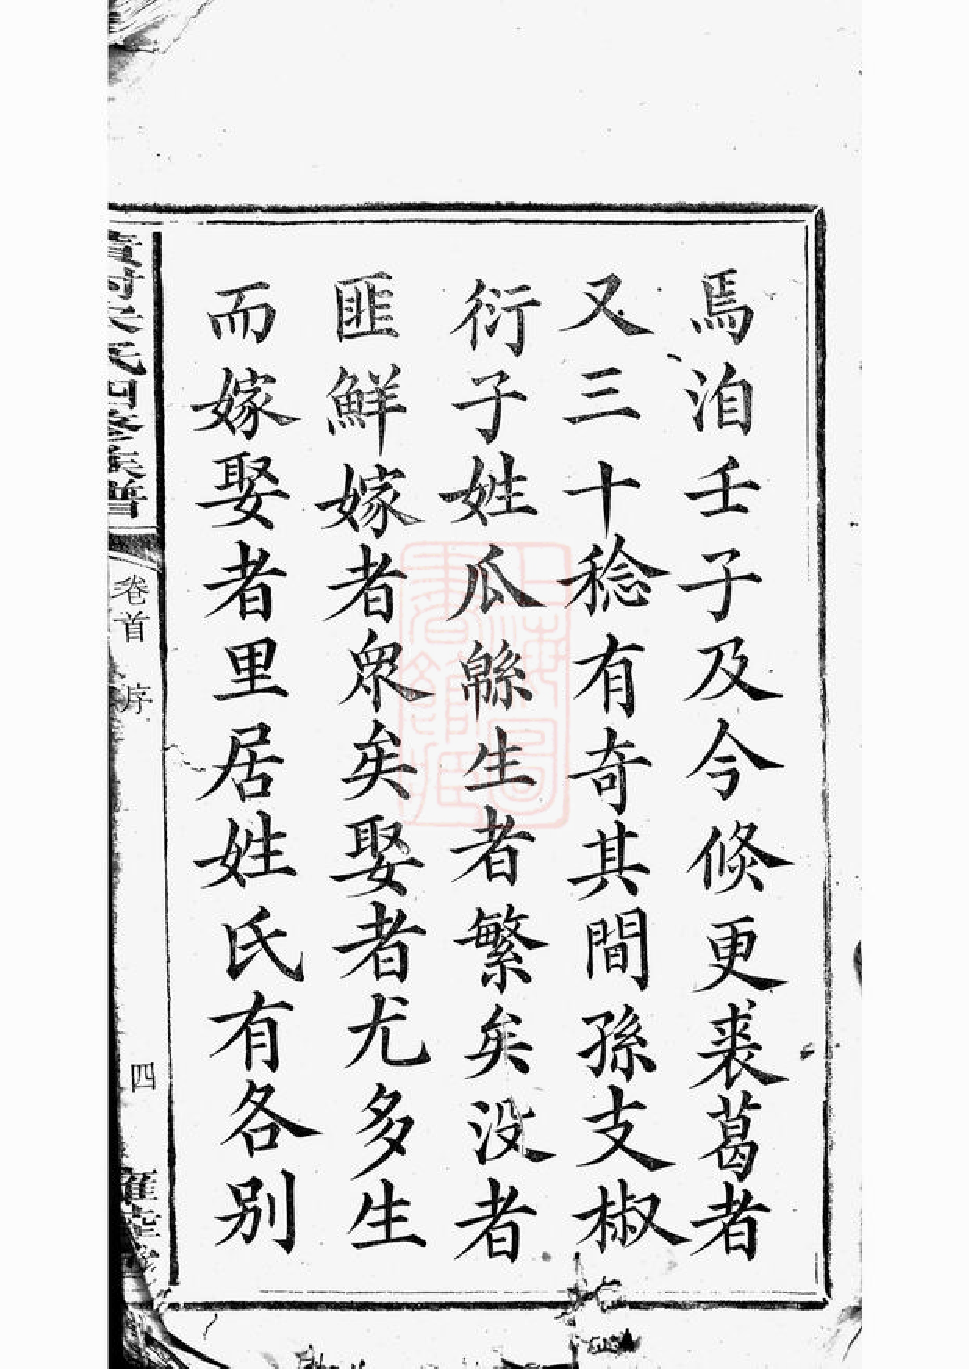 焉洎壬子及今倐更裘葛者
又三十稔有奇其間孫支椒
衍子姓瓜緜生者繁矣没者
匪鮮嫁者眾矣娶者尤多生
而嫁娶者里居姓氏有各别
氏四修族譜
卷首
序
四